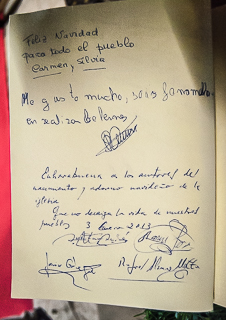 Feliz Navidad
para todo el pueblo
Carmen y Silvia
Me gusto mucho, sois
en realizar belenes
Enhorabuena a los autores del
nacimiento y adorno navideño de la
iglesia
Que no decaiga la vida de nuestros
pueblos 3 Enero 2013